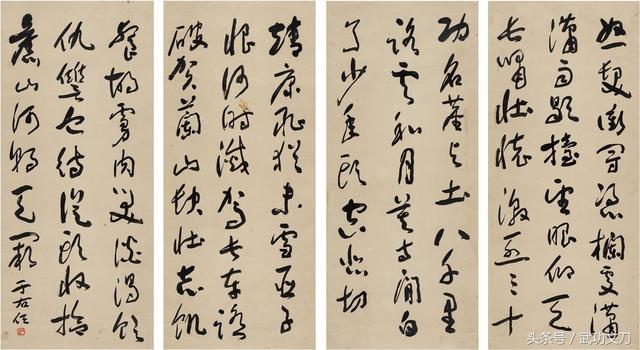 怒髮衝冠憑欄處瀟
瀟雨歇擡望眼仰天
長嘯壯懷激烈三十
功名塵與土八千里
路雲和月莫等閒白
了少年頭空悲切
靖康恥猶未雪臣子
恨何時滅駕長車踏
破賀蘭山缺壯志飢
餐胡虜肉笑談渴飲
仇讐血待從頭收拾
舊山河朝天闕 于右任
头条号／武功文刀